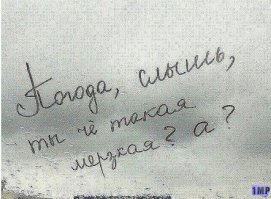 Погода, слышь,
ты чё такая
мерзкая? а?
1MP